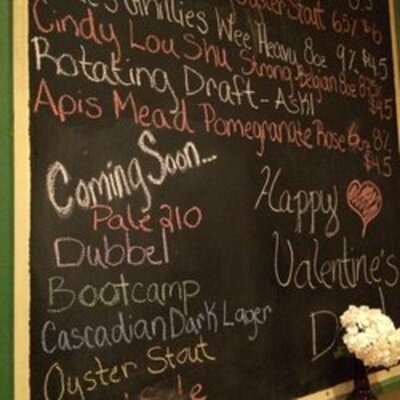 Oyster Stout 6.5% $6
Ghillies Wee Heavy 8oz 9% $4.5
Cindy Lou Shu Strong Belgian 8oz $4.5
Rotating Draft - Ask!
Apis Mead Pomegranate Rose 6oz 8% $4.5
Coming Soon...
Pale 210
Dubbel
Bootcamp
Cascadian Dark Lager
Oyster Stout
Happy
Valentine's